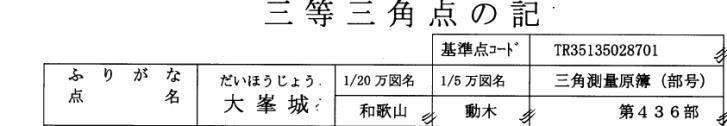 三等三角点の記
基準点コード TR35135028701
ふりがな だいほうじょう 1/20 万図名 1/5 万図名 三角測量原簿（部号）
点名 大峯城 和歌山 動木 第436部